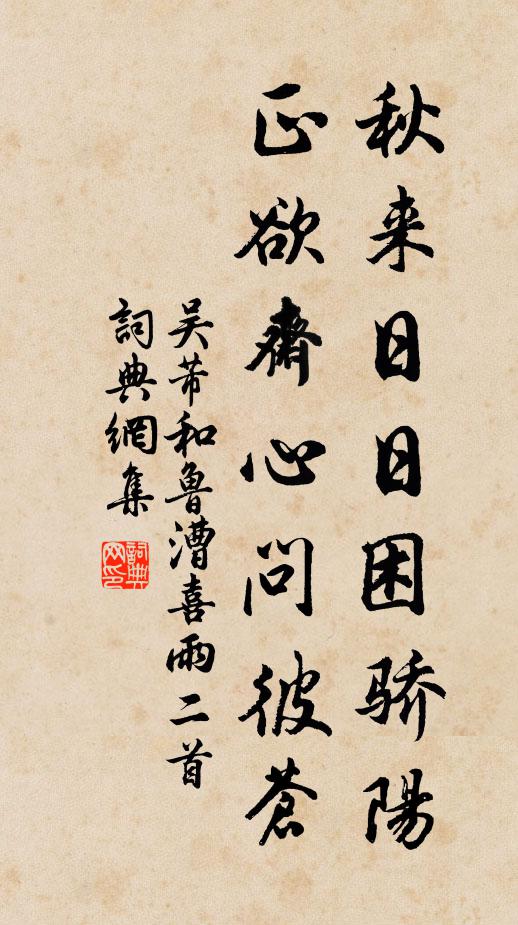 秋来日日困骄陽
正欲齋心问彼蒼
吴芾和鲁漕喜雨二首
詞典網集
詞典网印